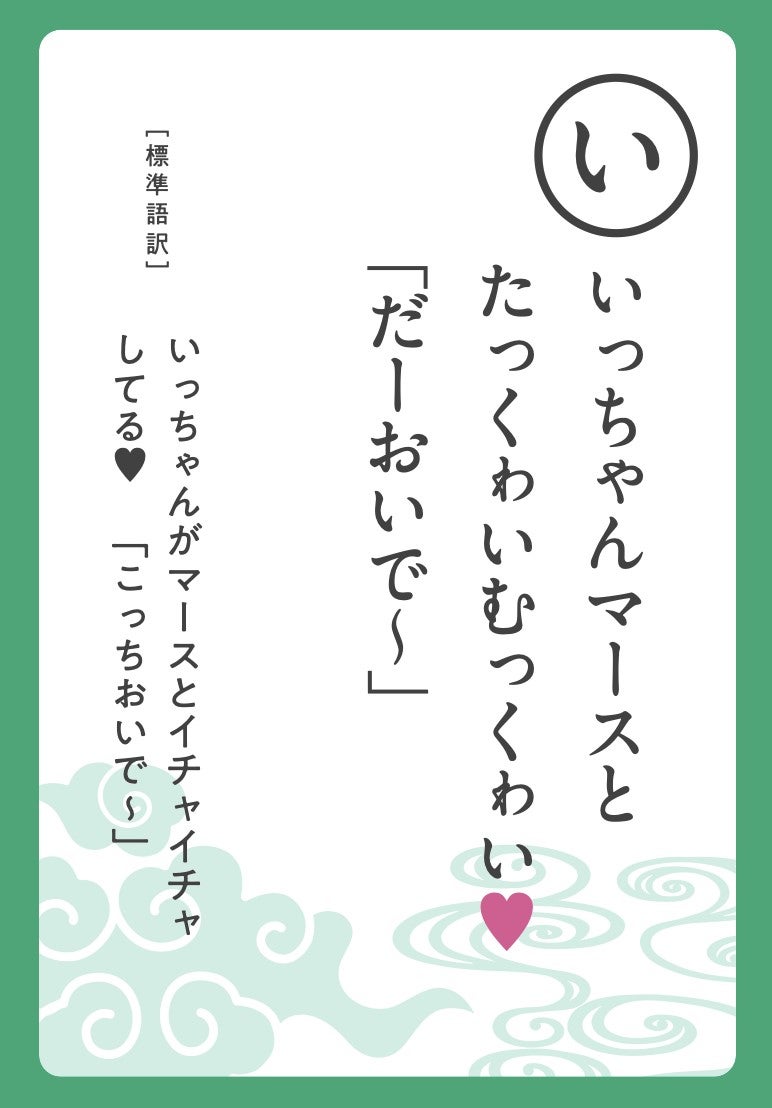 い
いっちゃんマースと
たっくゎいむっくゎい♥
「だーおいで～」
[標準語訳]
いっちゃんがマースとイチャイチャ
してる♥　「こっちおいで～」